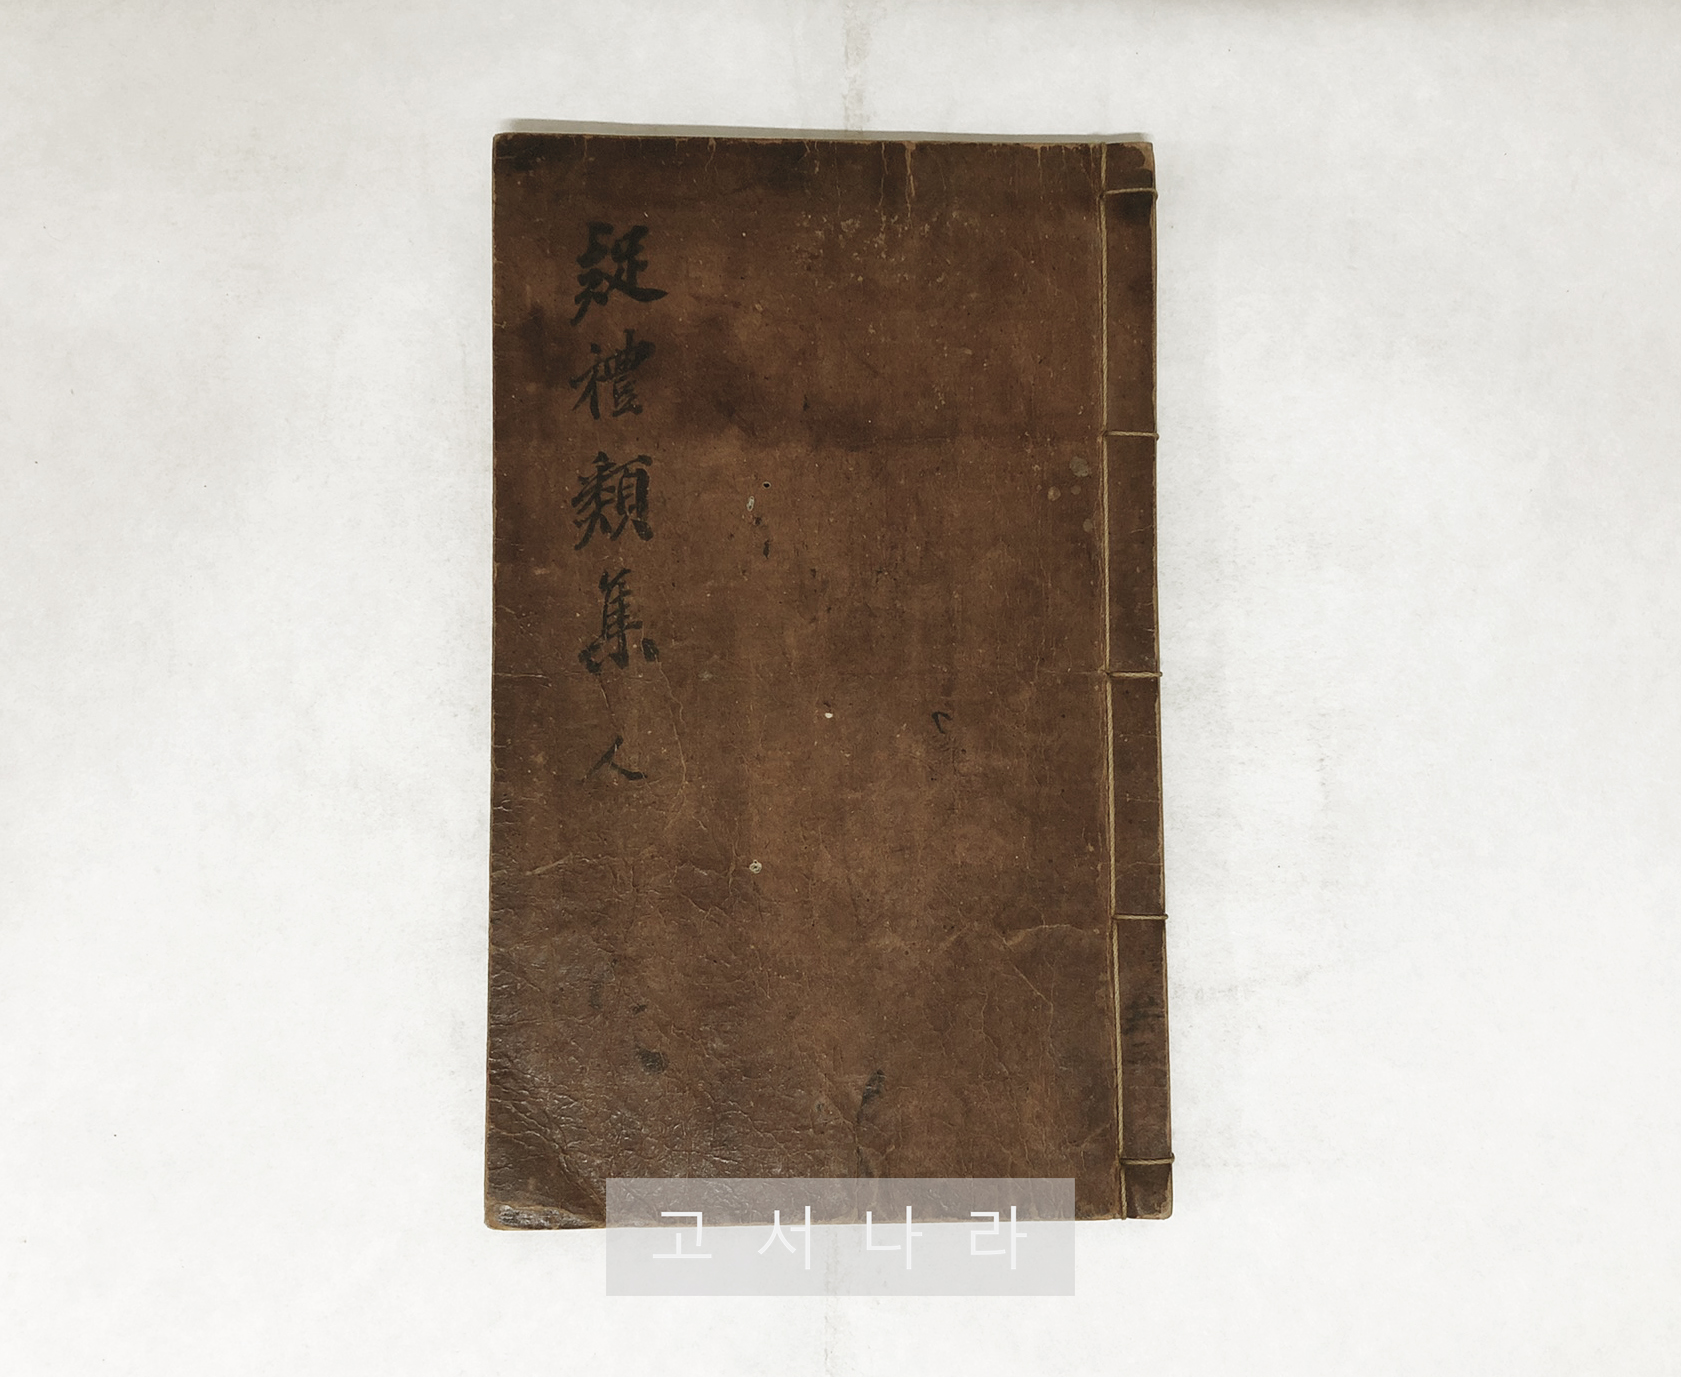 疑禮類集 人
고서나라